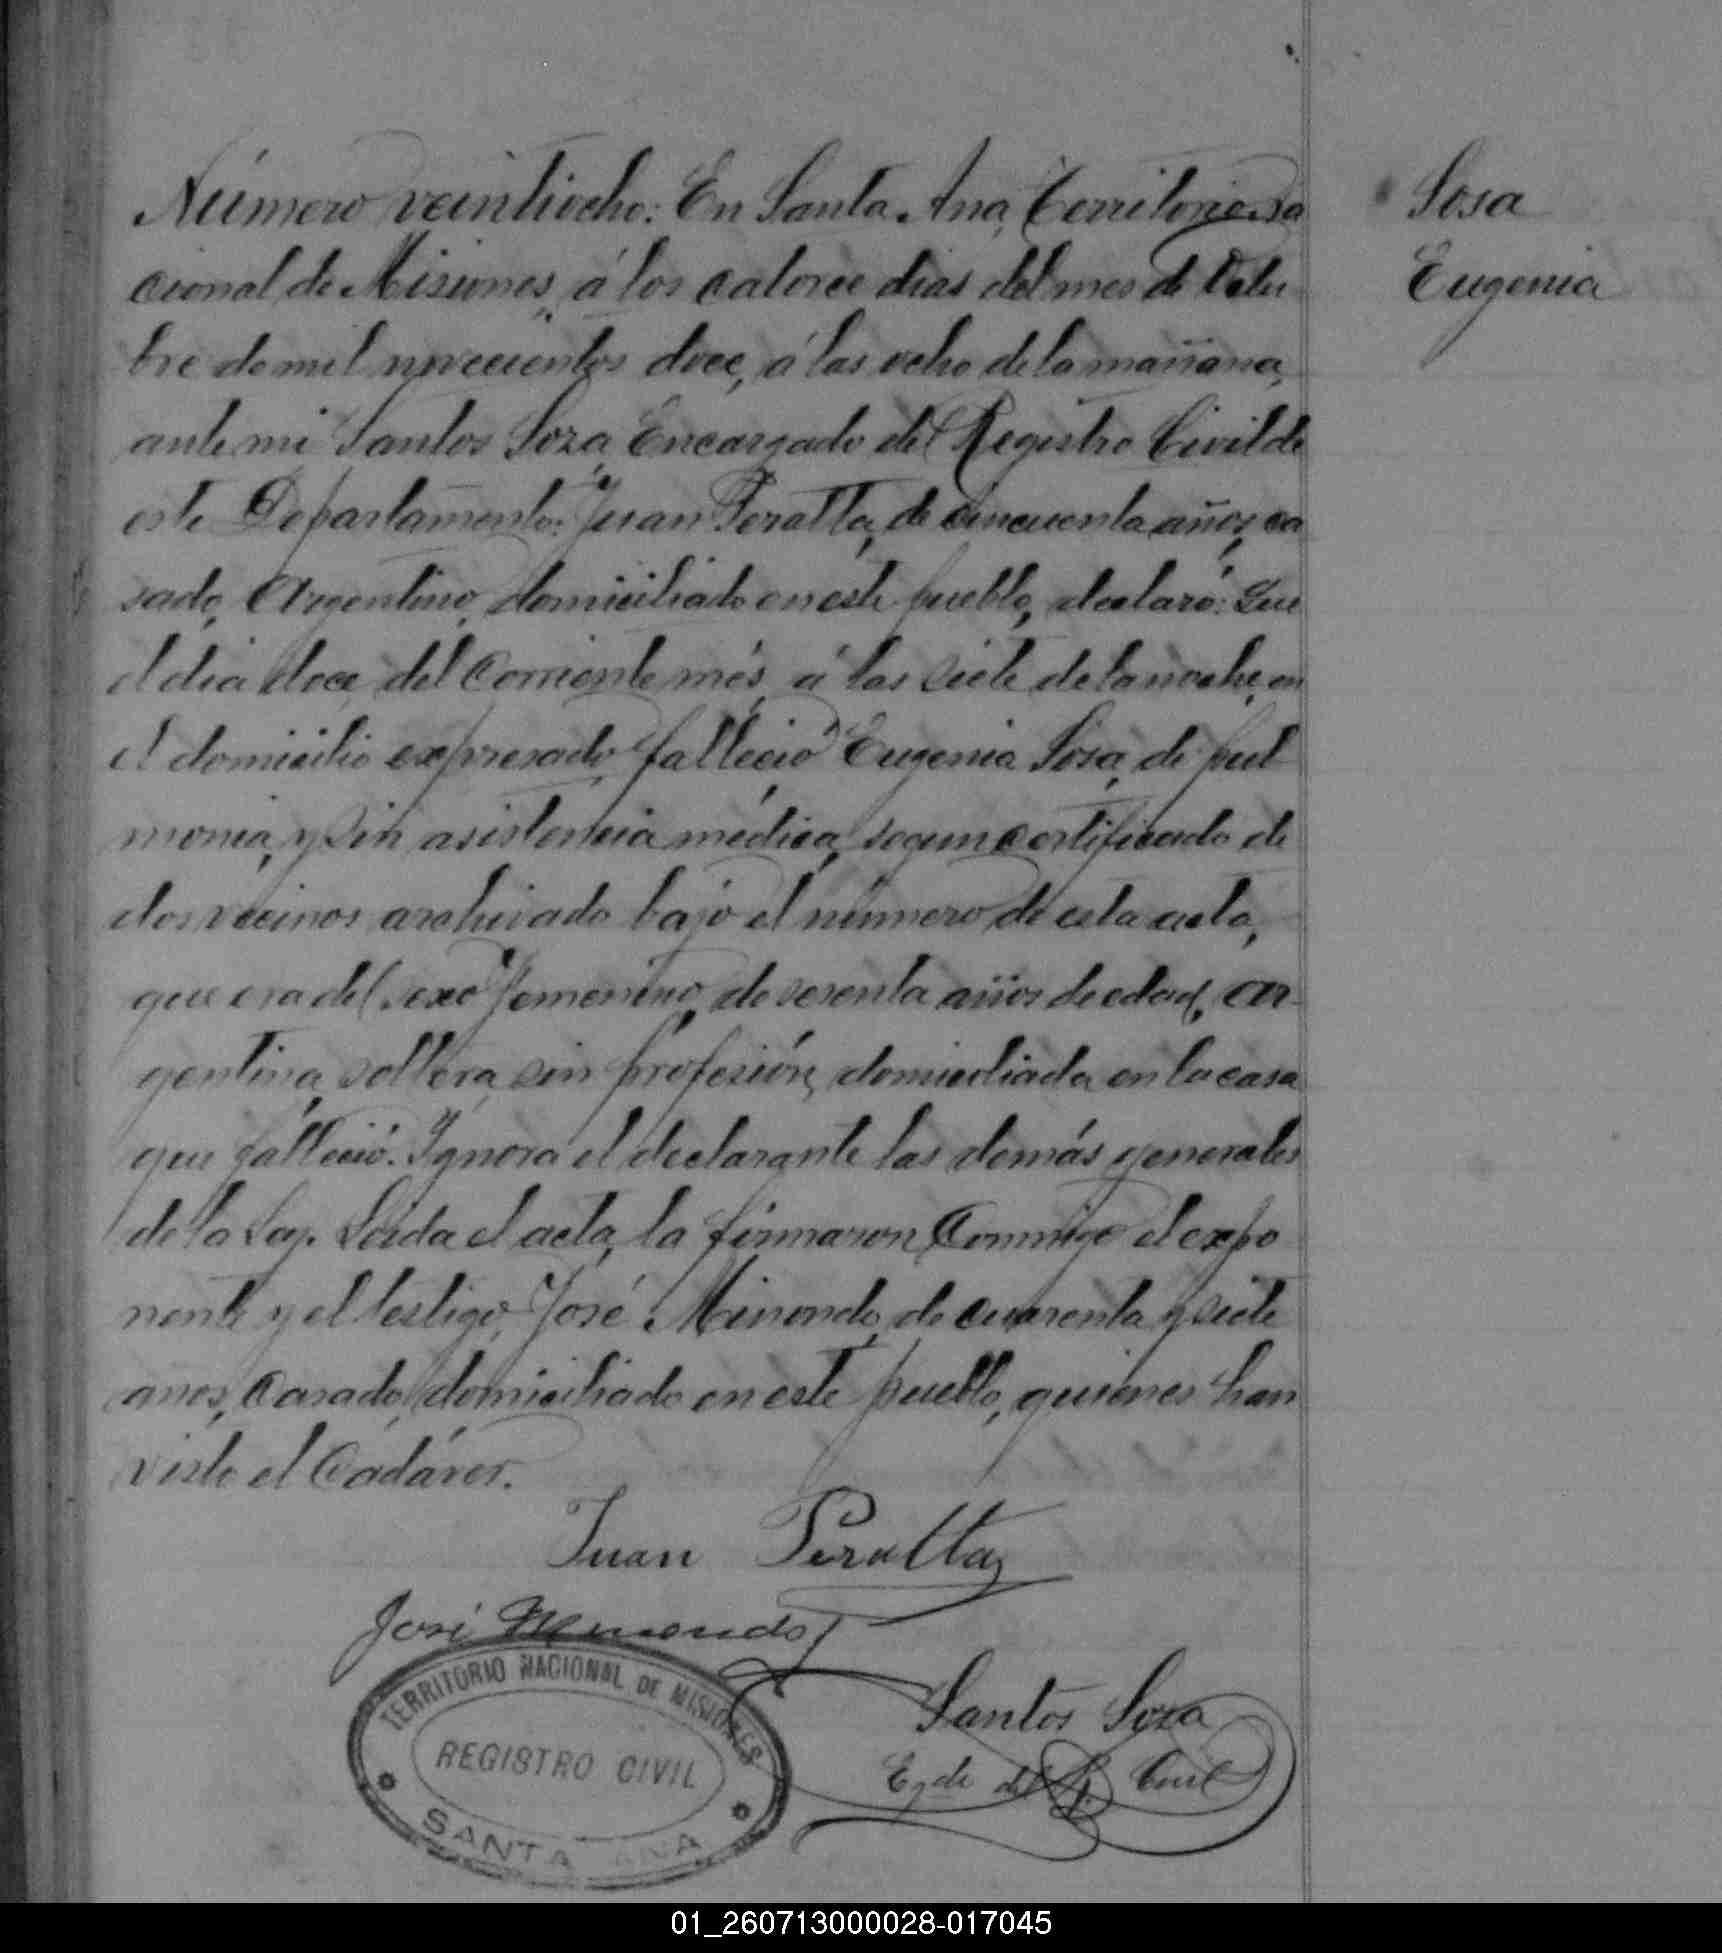 Número veintiocho: En Santa Ana, Territorio Na
cional de Misiones, á los catorce dias del mes de Octu
bre de mil novecientos doce, á las ocho de la mañana,
ante mi Santos Soza, Encargado del Registro Civil de
este Departamento: Juan Peralta, de cincuenta años, ca
sado, Argentino, domiciliado en este pueblo, declaró: Que
el dia doce, del corriente més, á las siete de la noche, en
el domicilio expresado, falleció Eugenia Sosa, de pul-
monia, y sin asistencia médica, segun certificado de
dos vecinos archivado bajo el número de esta acta,
que era del sexo femenino, de sesenta años de edad, ar-
gentina, soltera, sin profesión, domiciliada en la casa
que falleció. Ignora el declarante las demás generales
de la Ley. Leida el acta, la firmaron conmigo el expo
nente y el testigo, José Minondo, de cuarenta y siete
anos, casado, domiciliado en este pueblo, quienes han
visto el Cadáver.
Juan Peralta
José Minondo
Santos Soza
Egdo del R. Civil
TERRITORIO NACIONAL DE MISIONES
REGISTRO CIVIL
SANTA ANA
Sosa
Eugenia
01_260713000028-017045